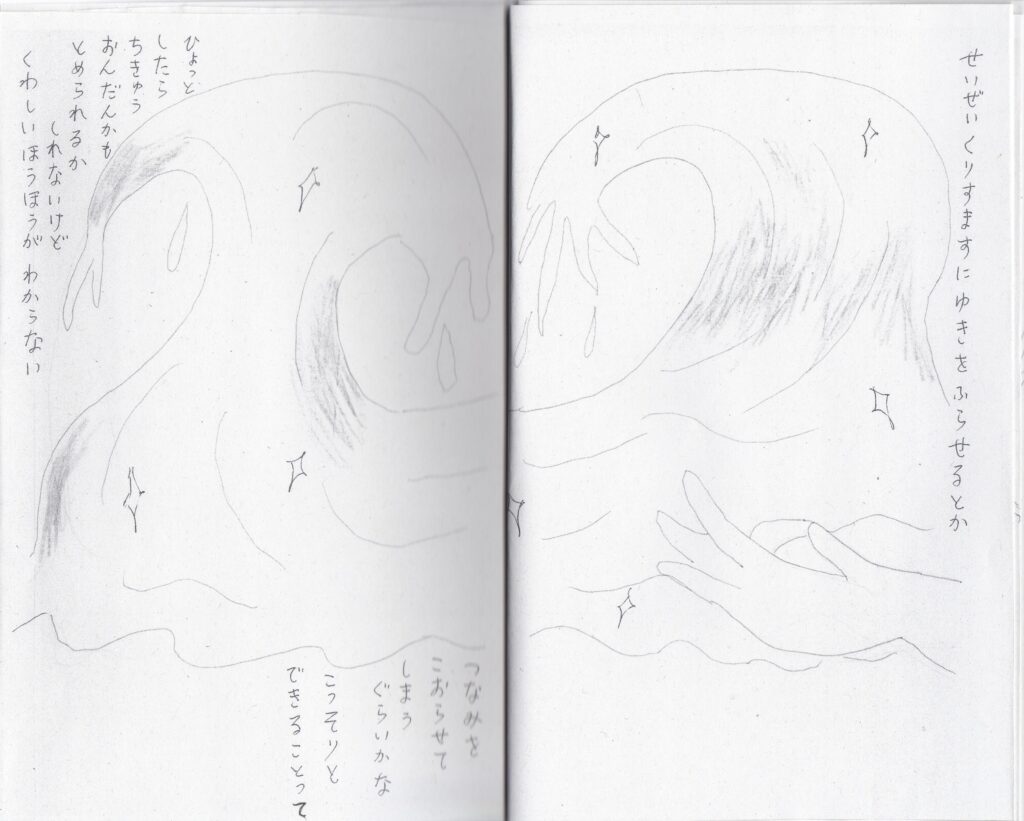 せいぜいくりすますにゆきをふらせるとか
つなみを
こおらせて
しまう
ぐらいかな
こっそりと
できることって
ひょっと
したら
ちきゅう
おんだんかも
とめられるか
しれないけど
くわしいほうほうが わからない